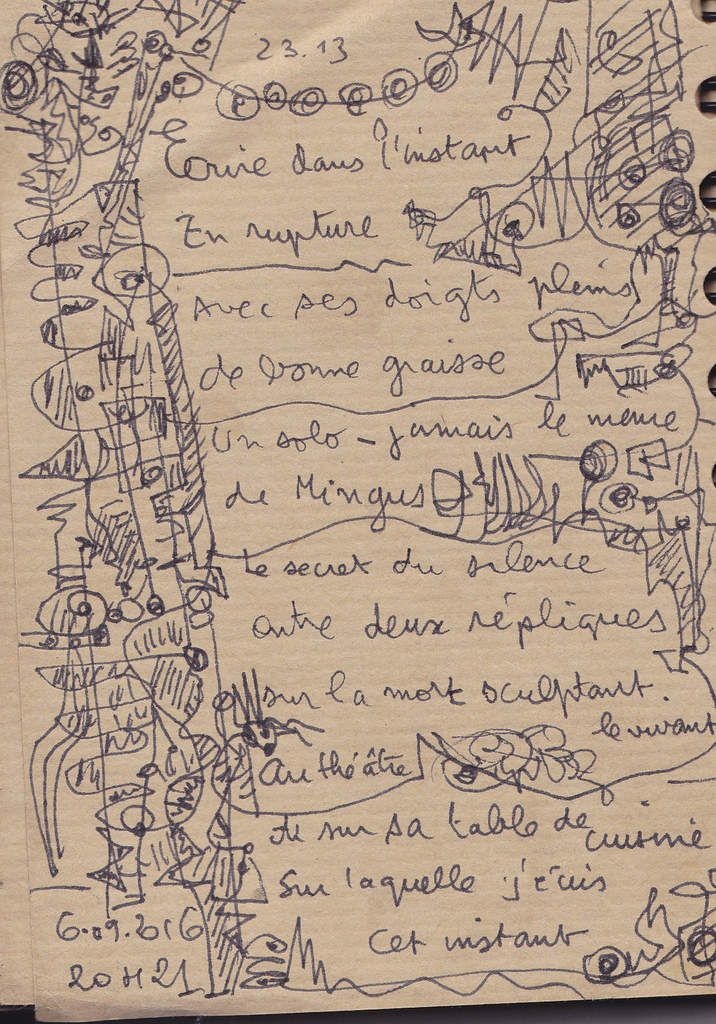 23.13
Ecrire dans l'instant
En rupture
avec ses doigts pleins
de bonne graisse
Un solo - jamais le même
de Mingus
Le secret du silence
entre deux répliques
sur la mort sculptant
le vivant
Au théâtre
Ou sur sa table de cuisine
Sur laquelle j'écris
Cet instant
6.09.2016
20H21